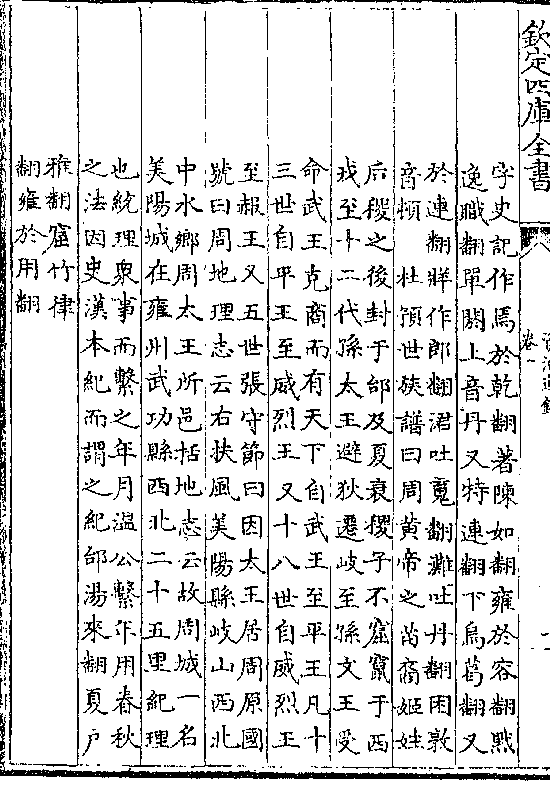 欽定四庫全書
資治通鑑
卷一
一
字史記作焉於乾翻著陳如翻雍於容翻黓
逸職翻單閼上音丹又特連翻下烏葛翻又
於連翻牂作郎翻涒吐䰟翻灘吐丹翻困敦
音頓 杜預世族譜曰周黃帝之苗裔姬姓
后稷之後封于邰及夏衰稷子不窋竄于西
戎至十二代孫太王避狄遷岐至孫文王受
命武王克商而有天下自武王至平王凡十
三世自平王至威烈王又十八世自威烈王
至赧王又五世張守節曰因太王居周原國
號曰周地理志云右扶風美陽縣岐山西北
中水鄉周太王所邑括地志云故周城一名
美陽城在雍州武功縣西北二十五里紀理
也統理衆事而繫之年月温公繫年用春秋
之法因史漢本紀而謂之紀邰湯來翻夏户
雅翻窋竹律
翻雍於用翻